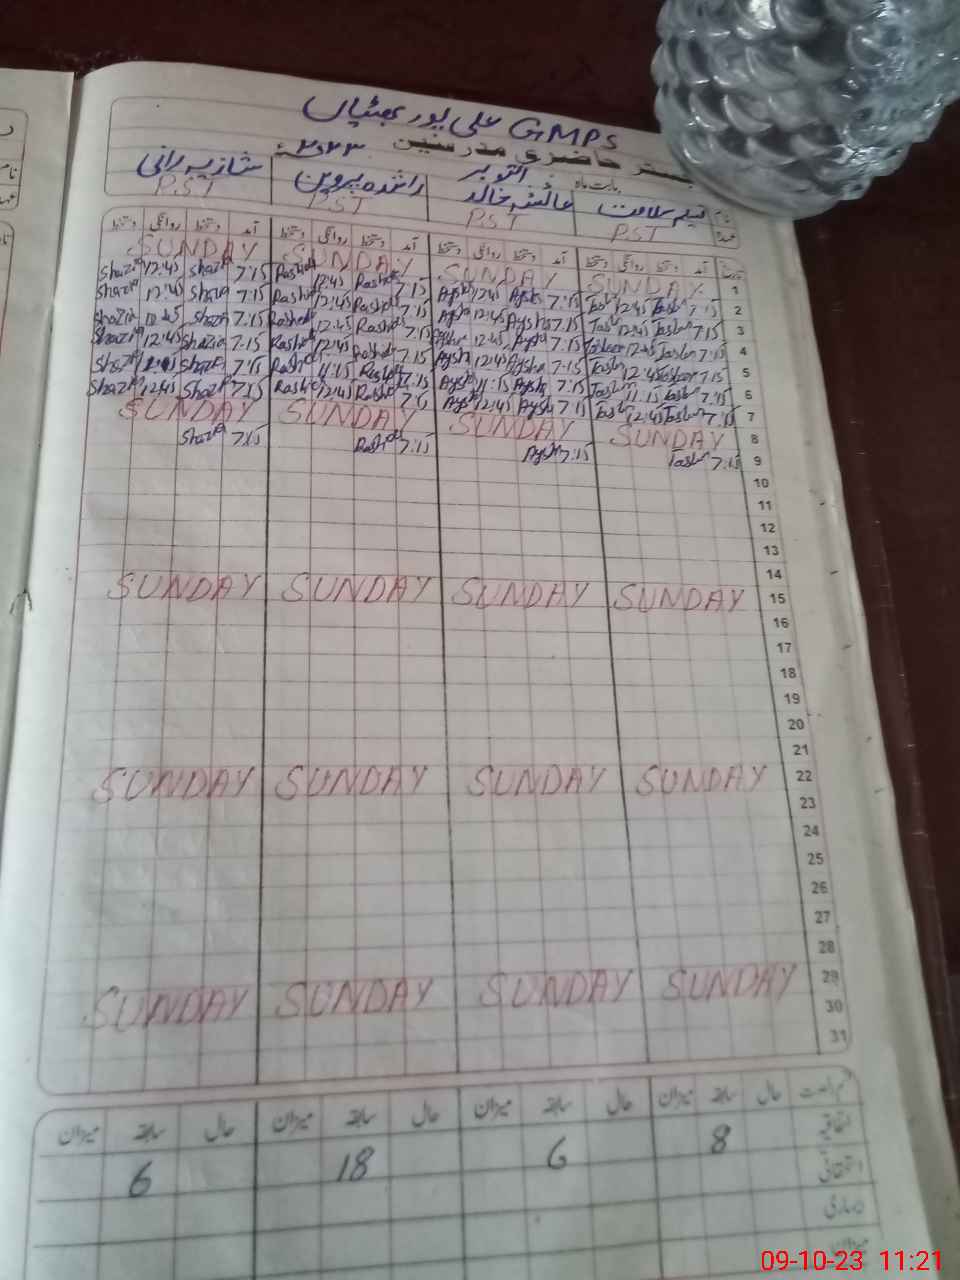 GMPS علی پور بھٹیاں
رجسٹر حاضری مدرسین ۲۰۲۳ء
بابت ماہ اکتوبر
نام تسلیم سلامت عائشہ خالد راشدہ پروین شازیہ رانی
عہدہ PST PST PST PST
تاریخ آمد دستخط روانگی دستخط آمد دستخط روانگی دستخط آمد دستخط روانگی دستخط آمد دستخط روانگی دستخط
SUNDAY SUNDAY SUNDAY SUNDAY 1
Shazia 12:45 Shazia 7:15 Rasheda 12:45 Rasheda 7:15 Aysha 12:45 Aysha 7:15 Taslim 12:45 Taslim 7:15 2
Shazia 12:45 Shazia 7:15 Rasheda 12:45 Rasheda 7:15 Aysha 12:45 Aysha 7:15 Taslim 12:45 Taslim 7:15 3
Shazia 12:45 Shazia 7:15 Rasheda 12:45 Rasheda 7:15 Aysha 12:45 Aysha 7:15 Taslim 12:45 Taslim 7:15 4
Shazia 12:45 Shazia 7:15 Rasheda 12:45 Rasheda 7:15 Aysha 12:45 Aysha 7:15 Taslim 12:45 Taslim 7:15 5
Shazia Shazia 7:15 Rasheda 11:15 Rasheda 7:15 Aysha 11:15 Aysha 7:15 Taslim 11:15 Taslim 7:15 6
Shazia 12:45 Shazia 7:15 Rasheda 12:45 Rasheda 7:15 Aysha 12:45 Aysha 7:15 Taslim 12:45 Taslim 7:15 7
SUNDAY SUNDAY SUNDAY SUNDAY 8
Shazia 7:15 Rasheda 7:15 Aysha 7:15 Taslim 7:15 9
10
11
12
13
14
SUNDAY SUNDAY SUNDAY SUNDAY 15
16
17
18
19
20
21
SUNDAY SUNDAY SUNDAY SUNDAY 22
23
24
25
26
27
28
SUNDAY SUNDAY SUNDAY SUNDAY 29
30
31
حال سابقہ میزان حال سابقہ میزان حال سابقہ میزان حال سابقہ میزان
اتفاقیہ 8 6 18 6
استحقاقی
بیماری
میزان
09-10-23 11:21